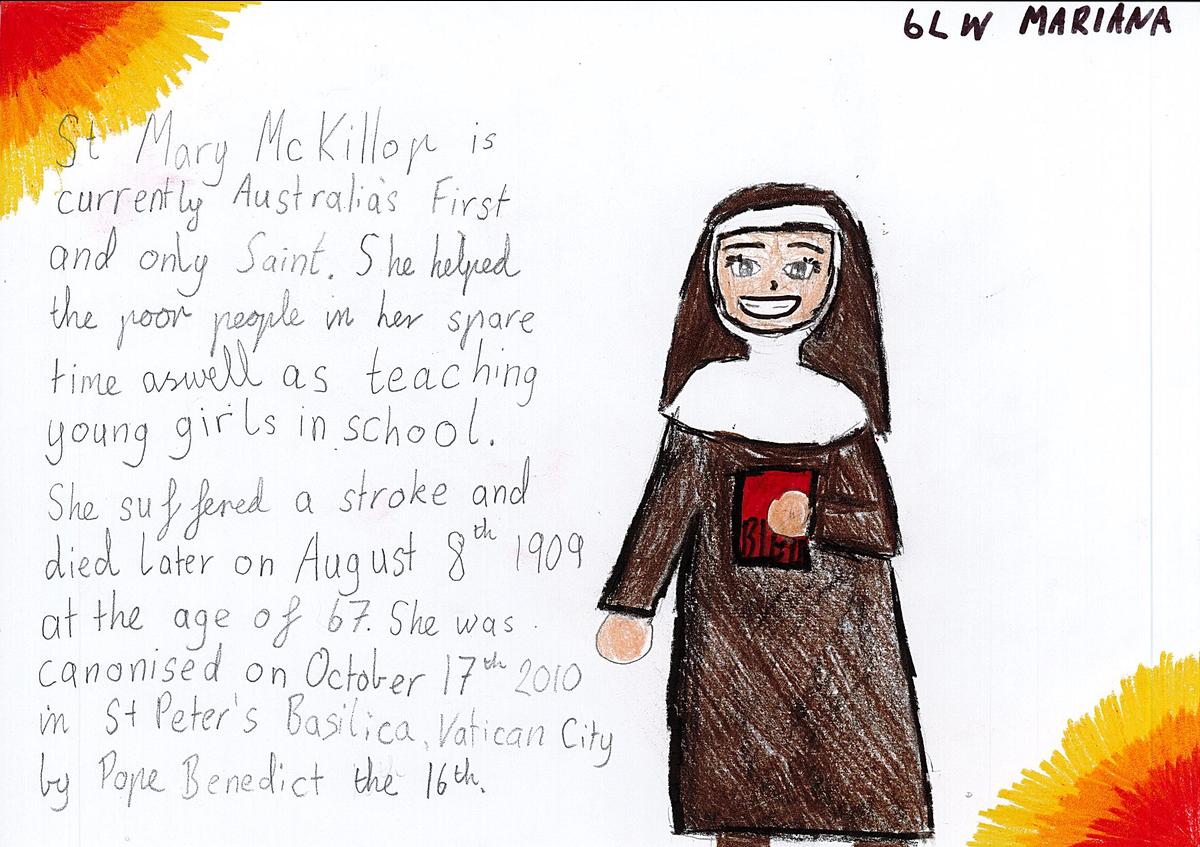 6LW MARIANA
St Mary McKillop is
currently Australia's First
and only Saint. She helped
the poor people in her spare
time aswell as teaching
young girls in school.
She suffered a stroke and
died later on August 8th 1909
at the age of 67. She was
canonised on October 17th 2010
in St Peter's Basilica, Vatican City
by Pope Benedict the 16th.